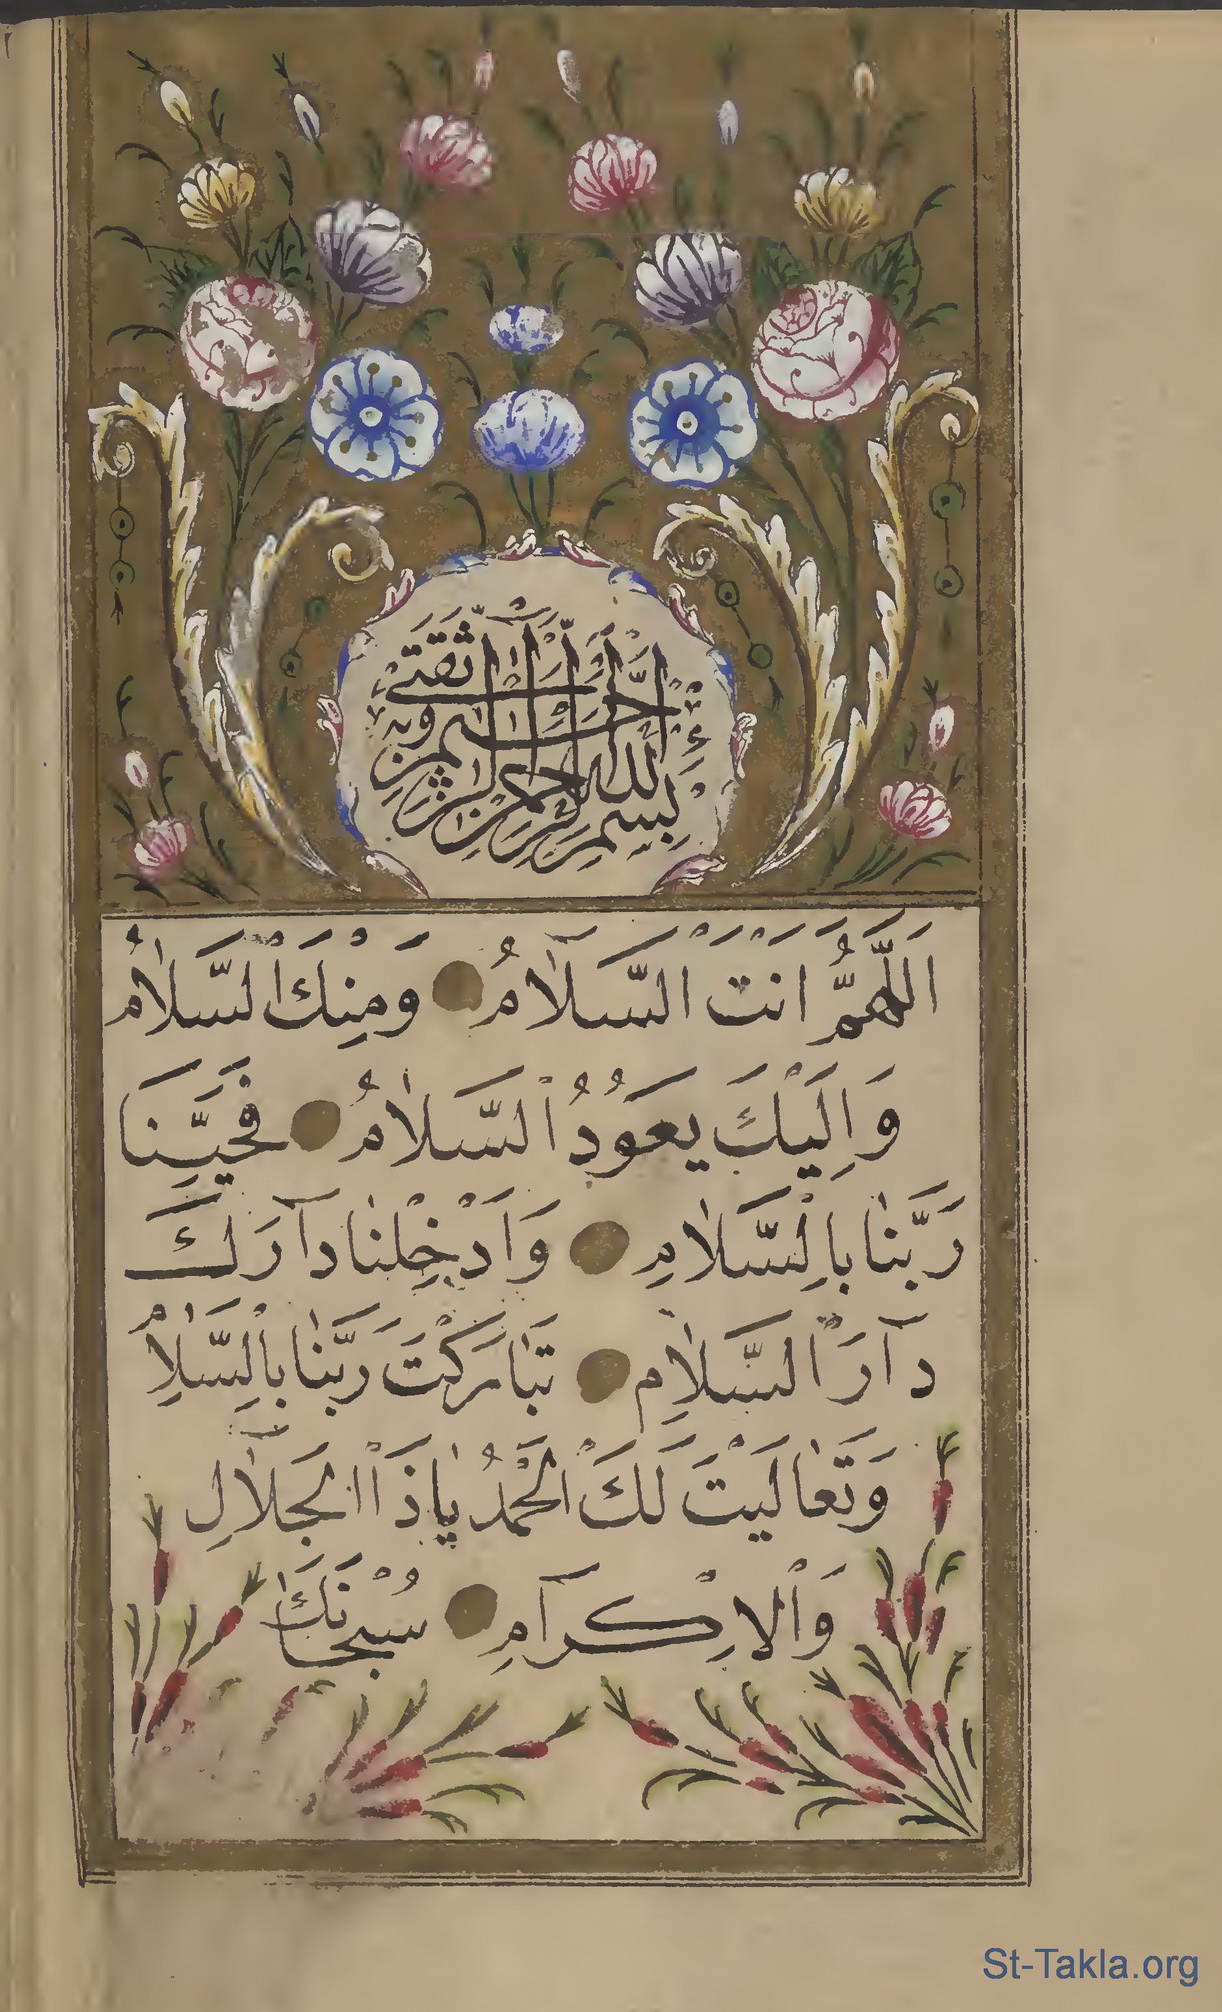 بسم الله الرحمن الرحيم وبه ثقتي
اَللّٰهُمَّ اَنْتَ السَّلَامُ وَمِنْكَ السَّلَامُ
وَاِلَيْكَ يَعُودُ السَّلَامُ فَحَيِّنَا
رَبَّنَا بِالسَّلَامِ وَاَدْخِلْنَا دَارَكَ
دَارَ السَّلَامِ تَبَارَكْتَ رَبَّنَا بِالسَّلَامِ
وَتَعَالَيْتَ لَكَ الْحَمْدُ يَاذَا الْجَلَالِ
وَالْاِكْرَامِ سُبْحَانَكَ
St-Takla.org